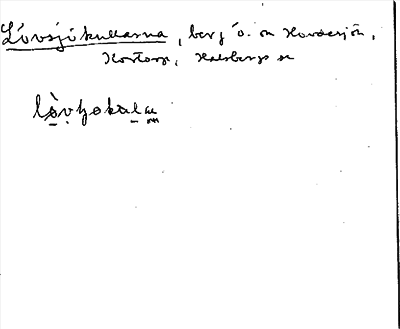 Lövsjökullarna, berg ö. om Hovasjön,
Hortorp, Halsbergs sn
lòvʃokalæ